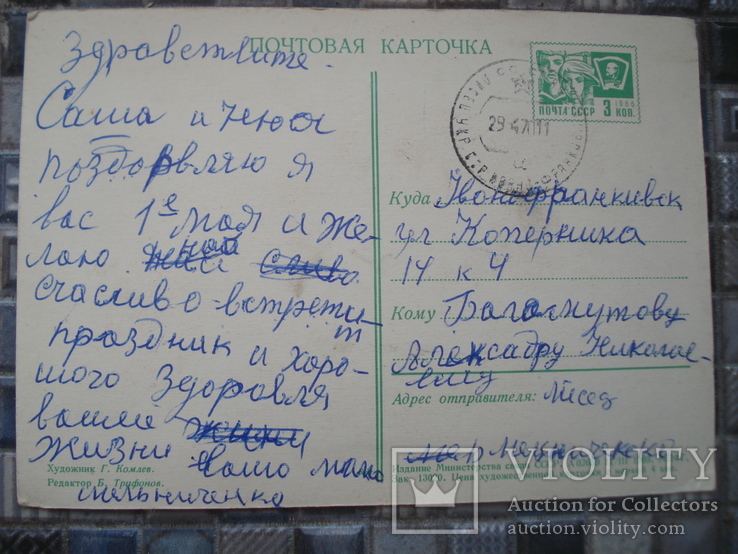 ПОЧТОВАЯ КАРТОЧКА
Здравствлите
Саша и Нюся
поздоровляю я
вас 1е мая и же-
лаю
счасливо встрети
т
праздник и хоро-
шого Здоровля
вашей
жизни ваша мама
мельниченко
Художник Г. Комлев.
Редактор Б. Трифонов.
ПОЧТА СССР 3 КОП.
1966
29 4 71 11
Куда Iванофранкивск
ул Коперника
14 к 4
Кому Богомутову
Александру Николае-
вичу
Адрес отправителя:
Издание Министерства связи СССР
VIOLITY
Auction for Collectors
auction.violity.com